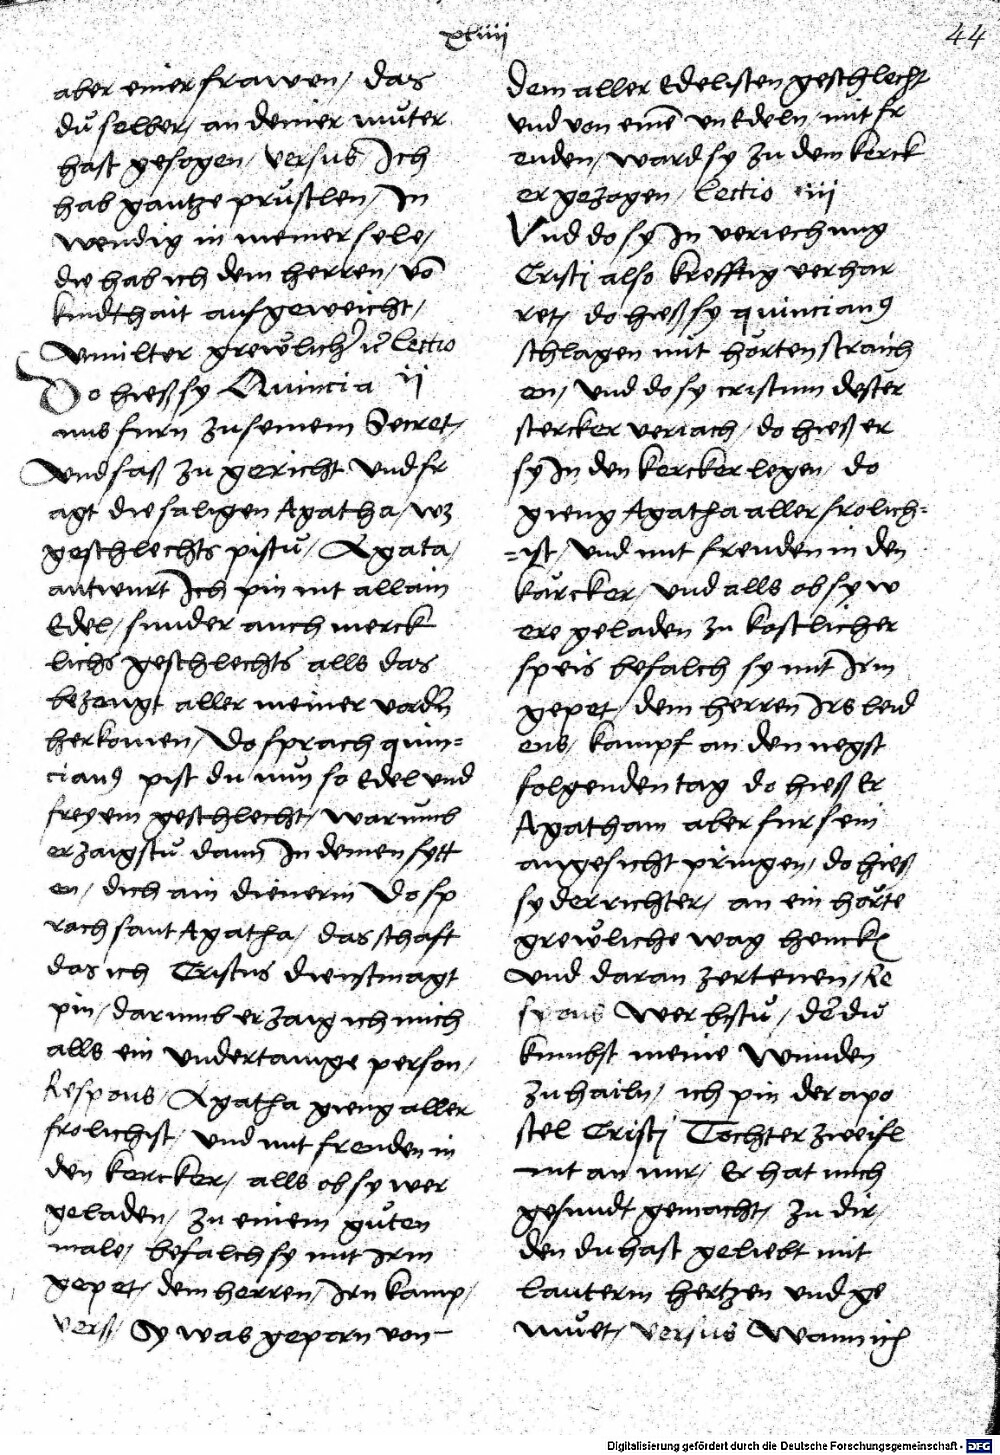 xliiij
44
aber einer frawen / das
du selber / an deiner muter
hast gesogen / Versus Ich
hab gantze prustlen / In
wendig in meiner sele /
die hab ich dem herren / vō
kindthait aufgeweicht /
Vmilter grewlicher vt Lectio
Do hieß sy Quincia ij
nus furn zu seinem Secret /
Vnd saß zu gericht Vnd fr
agt die saligen Agatha / wz
geschlechts pistu / Agata /
antwurt Ich pin nit allain
Edel / sunder auch merck
lichs geschlechts alls das
bezeugt aller meiner vordn
herkomen / Do sprach quin=
cianus pist du nun so Edel vnd
freyem geschlecht / warumb
erzaigstu dann In deinen sytt
en / dich ain dienerin Do sp
rach sant Agatha / das schaft
das ich Cristus dienstmagt
pin / darumb erzaig ich mich
alls ein vndertanige person /
Respons / Agatha gieng aller
frolichist / vnd mit freuden in
den kercker / alls ob sy wer
geladen / zu einem guten
male / befalch sy mit irm
gepet / dem herren / Irn kamp /
Verß / Sy was geporn von
dem aller Edelisten geschlecht
vnd von einē vnEdeln / mit fr
euden / ward sy zu dem kerck
er gezogen / Lectio iij
Vnd do sy In veriechung
Cristi also krefftig verhar
ret / do hieß sy quincianus
schlagen mit horten straich
en / vnd do sy cristum dester
stercker veriach / do hieß er
sy In den kercker legen / do
gieng Agatha aller frolich=
=ist / vnd mit freuden in den
karcker / vnd alls ob sy w
ere geladen zu kostlicher
speis befalch sy mit Irm
gepet / dem herren Irs leid
ens / kampf an den negst
folgenden tag do hieß Er
Agatham aber fur sein
angesicht pringen / do hieß
sy der richter / an ein horte
grewliche wag hencken
vnd daran zertenen / Re
spons Wer bistu / der du
kumbst meine wunden
zu hailn / ich pin der apo
stel Cristi Tochter zweifl
nit an mir / Er hat mich
gesundt gemacht / zu dir /
den du hast geliebt mit
lauterm hertzen vnd ge
muet / Versus Wann ich
Digitalisierung gefördert durch die Deutsche Forschungsgemeinschaft - DFG